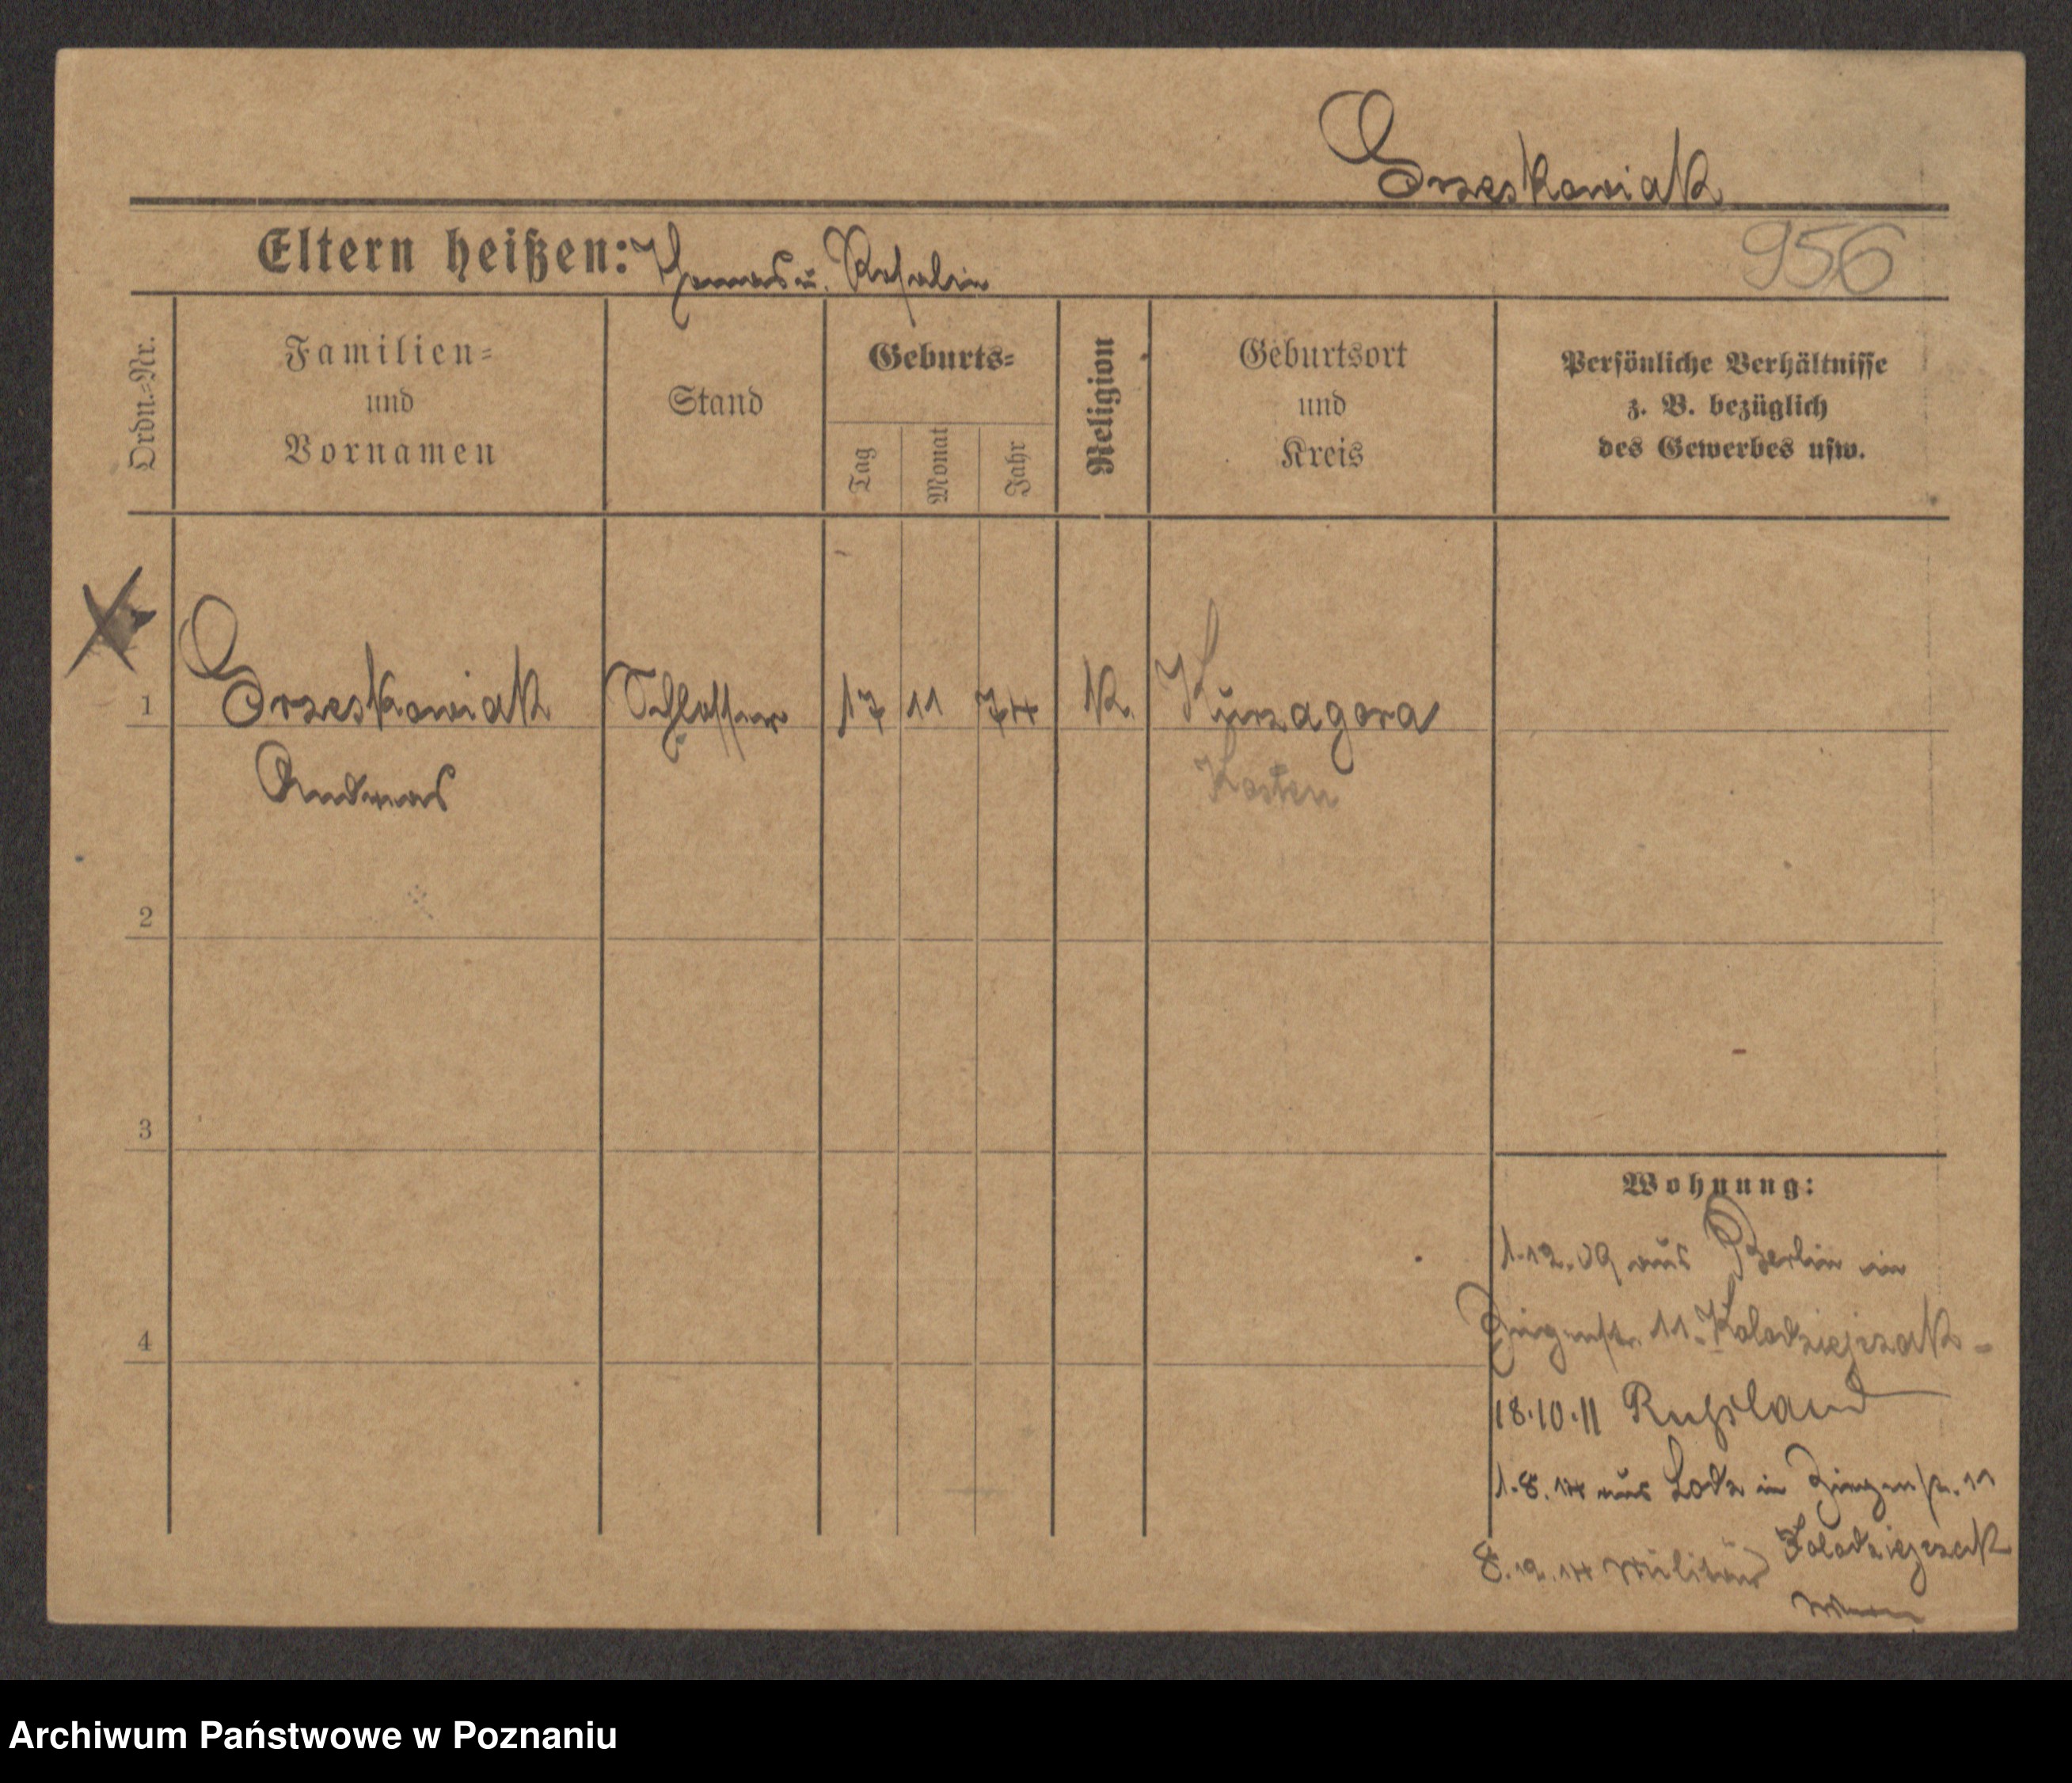 Grzeskowiak
Eltern heißen: Thomas u. Rosalie
956
Ordn.=Nr.
Familien=
und
Vornamen
Stand
Geburts=
Tag
Monat
Jahr
Religion
Geburtsort
und
Kreis
Persönliche Verhältnisse
z. B. bezüglich
des Gewerbes usw.
1
Grzeskowiak
Schlosser
17 11 74
K.
Kurzagora
Andreas
Kosten
2
3
4
Wohnung:
1.12.09 aus Berlin in
Ziegenstr. 11. Kolodziejczak -
18.10.11 Russland
1.8.14 aus Lodz in Ziegenstr. 11
Kolodziejczak
8.12.14 Militär
Archiwum Państwowe w Poznaniu